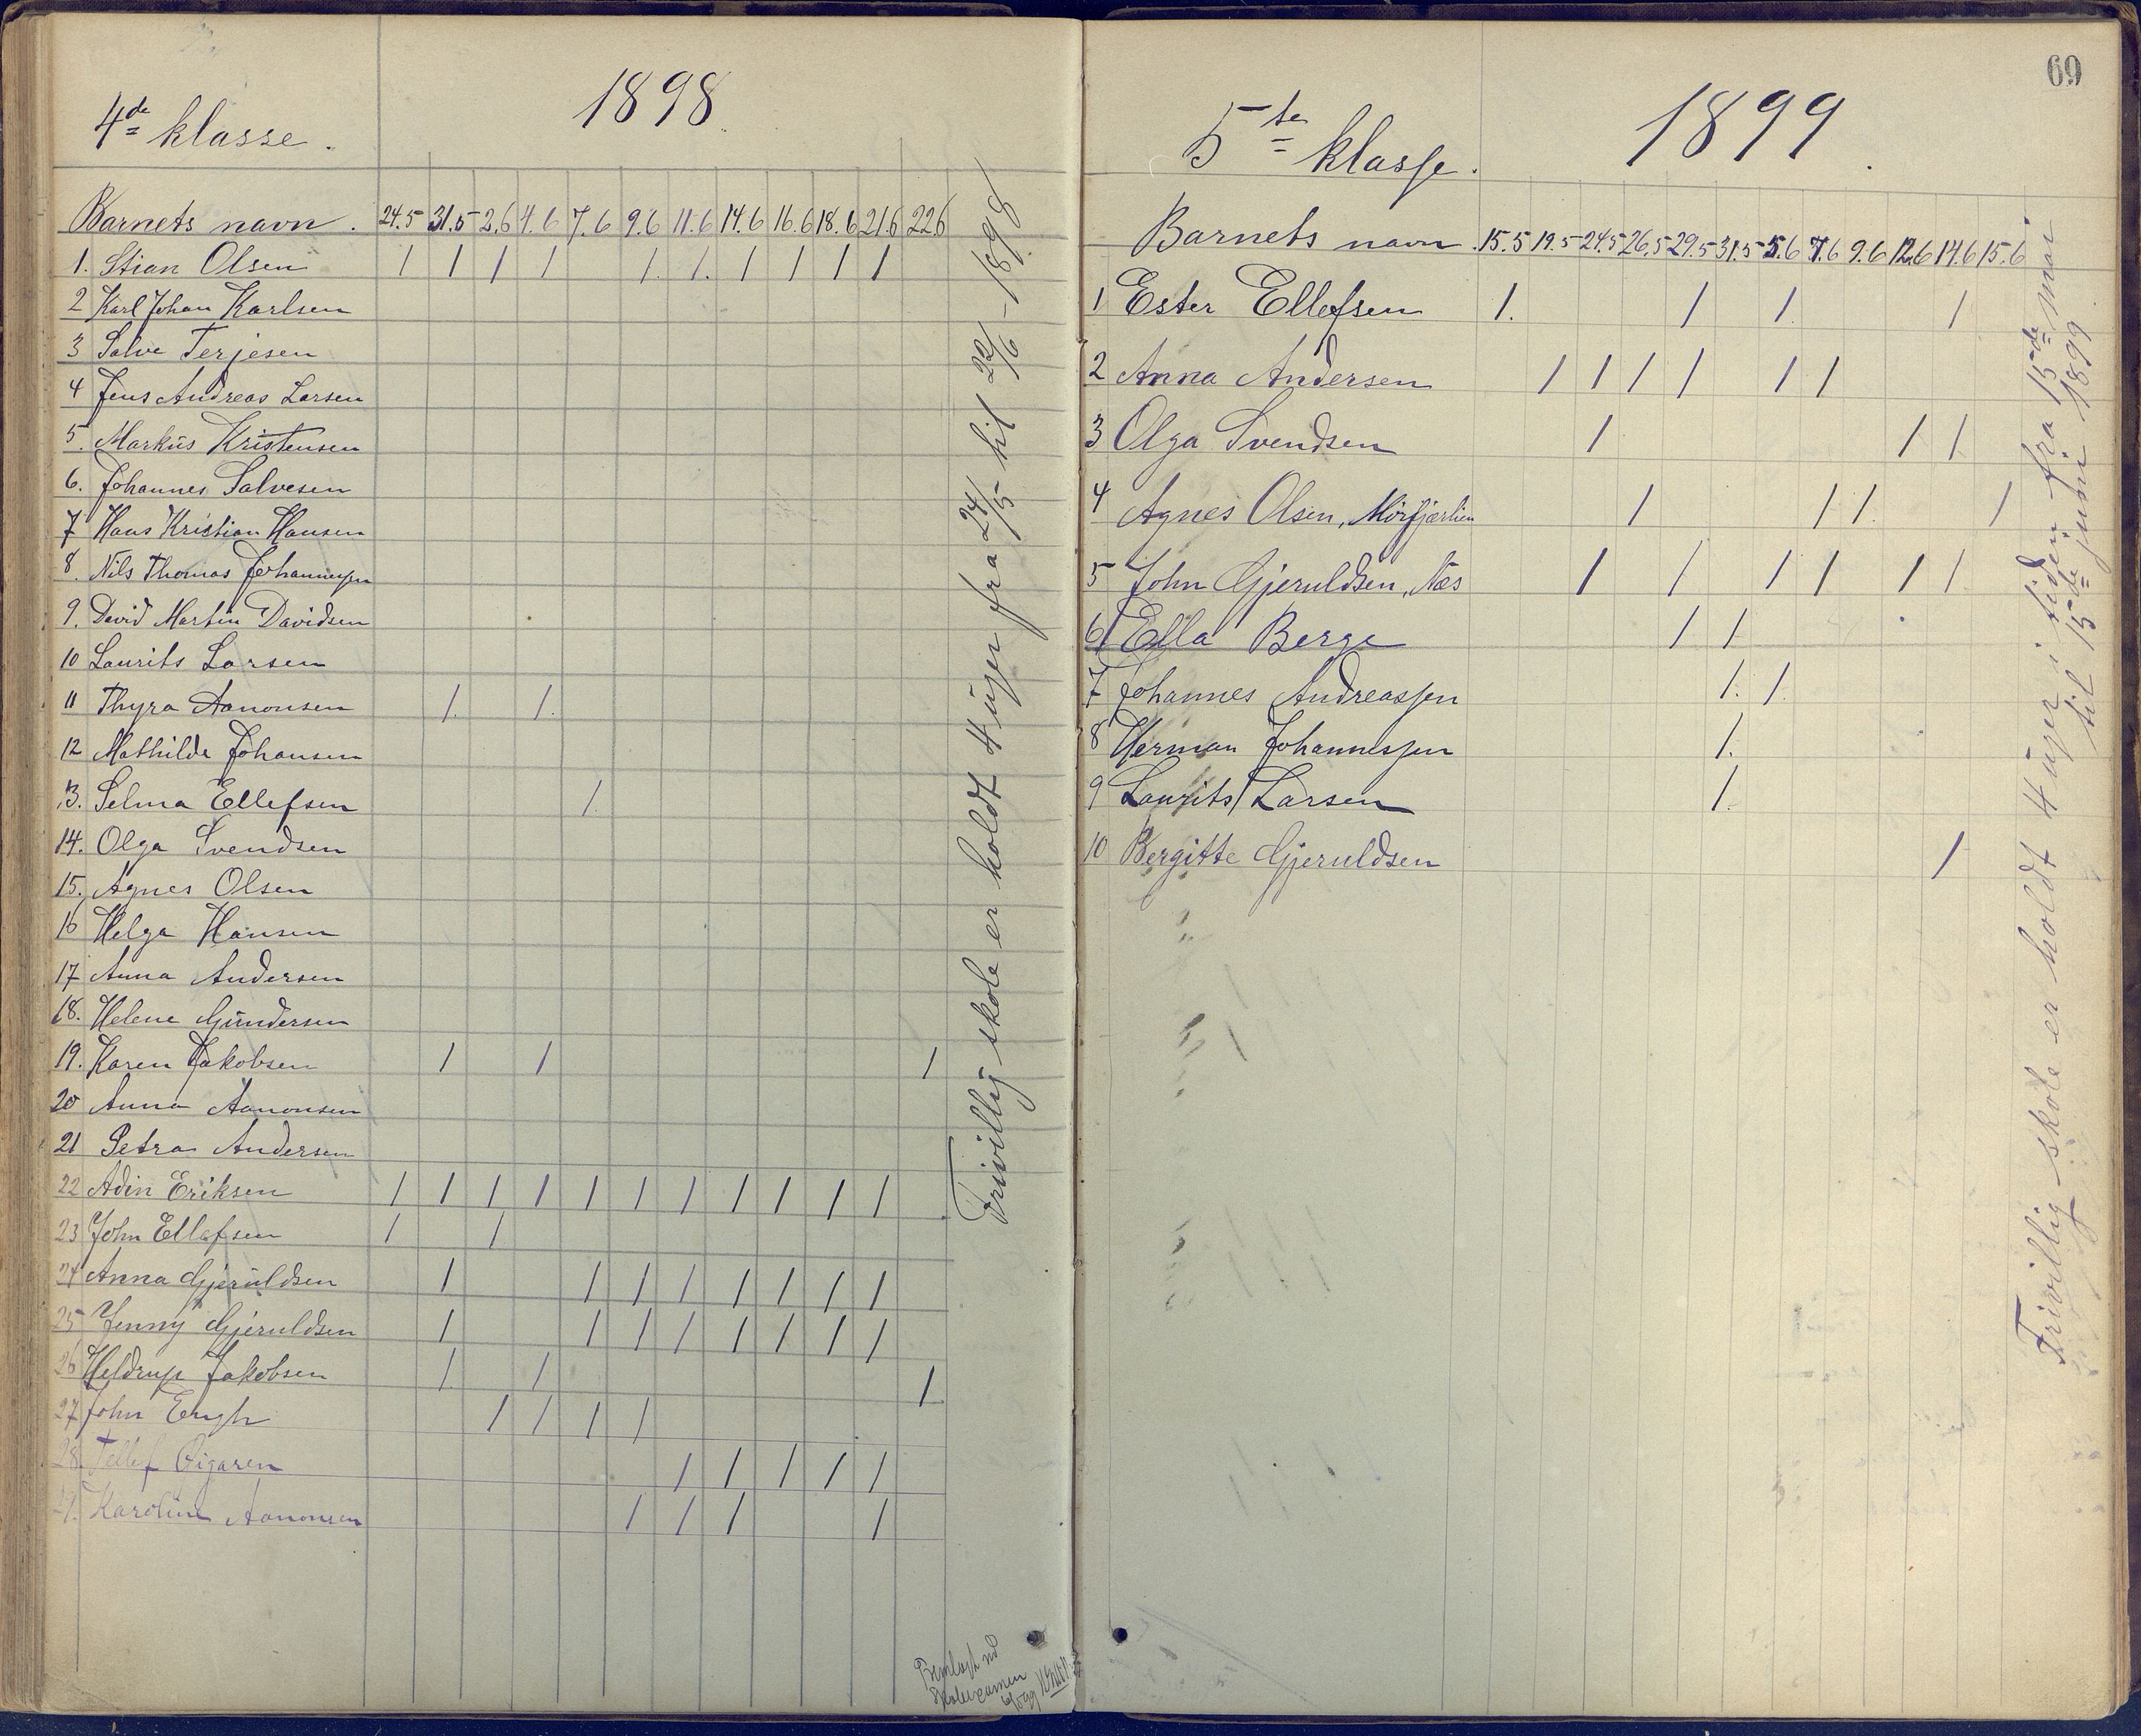 4de klasse.
1898
Barnets navn. 24.5 31.5 2.6 4.6 7.6 9.6 11.6 14.6 16.6 18.6 21.6 22.6
1. Stian Olsen / / / / / / / / / /
2 Karl Johan Karlsen
3 Salve Terjesen
4 Jens Andreas Larsen
5. Markus Kristensen
6. Johannes Salvesen
7 Hans Kristian Hansen
8. Nils Thomas Johannessen
9. David Martin Davidsen
10 Laurits Larsen
11 Thyra Aanonsen / /
12 Mathilde Johansen
13. Selma Ellefsen /
14. Olga Svendsen
15. Agnes Olsen
16 Helga Hansen
17 Anna Andersen
18. Helene Gundersen
19. Karen Jakobsen / / /
20 Anna Aanonsen
21 Petra Andersen
22 Adin Eriksen / / / / / / / / / / /
23 John Ellefsen / /
24 Anna Gjeruldsen / / / / / / / /
25 Jenny Gjeruldsen / / / / / / / /
26 Heldrup Jakobsen / / /
27 John Engh / / / /
28. Tellef / / / / /
29. Karoline Aanonsen / / / /
Frivillig skole er holdt 4 uger fra 24/5 til 22/6 - 1898
Fremlagt ved
skoleexamen
69
5te klasse.
1899
Barnets navn 15.5 19.5 24.5 26.5 29.5 31.5 5.6 7.6 9.6 12.6 14.6 15.6
1 Ester Ellefsen / / / /
2 Anna Andersen / / / / / /
3 Olga Svendsen / / /
4 Agnes Olsen, / / / /
5 John Gjeruldsen, Næs / / / / / /
6 Ella Berge / /
7 Johannes Andreassen / /
8 Herman Johannessen /
9 Laurits Larsen /
10 Bergitte Gjeruldsen /
Frivillig skole er holdt 4 uger i tiden fra 15de mai
til 15de juni 1899